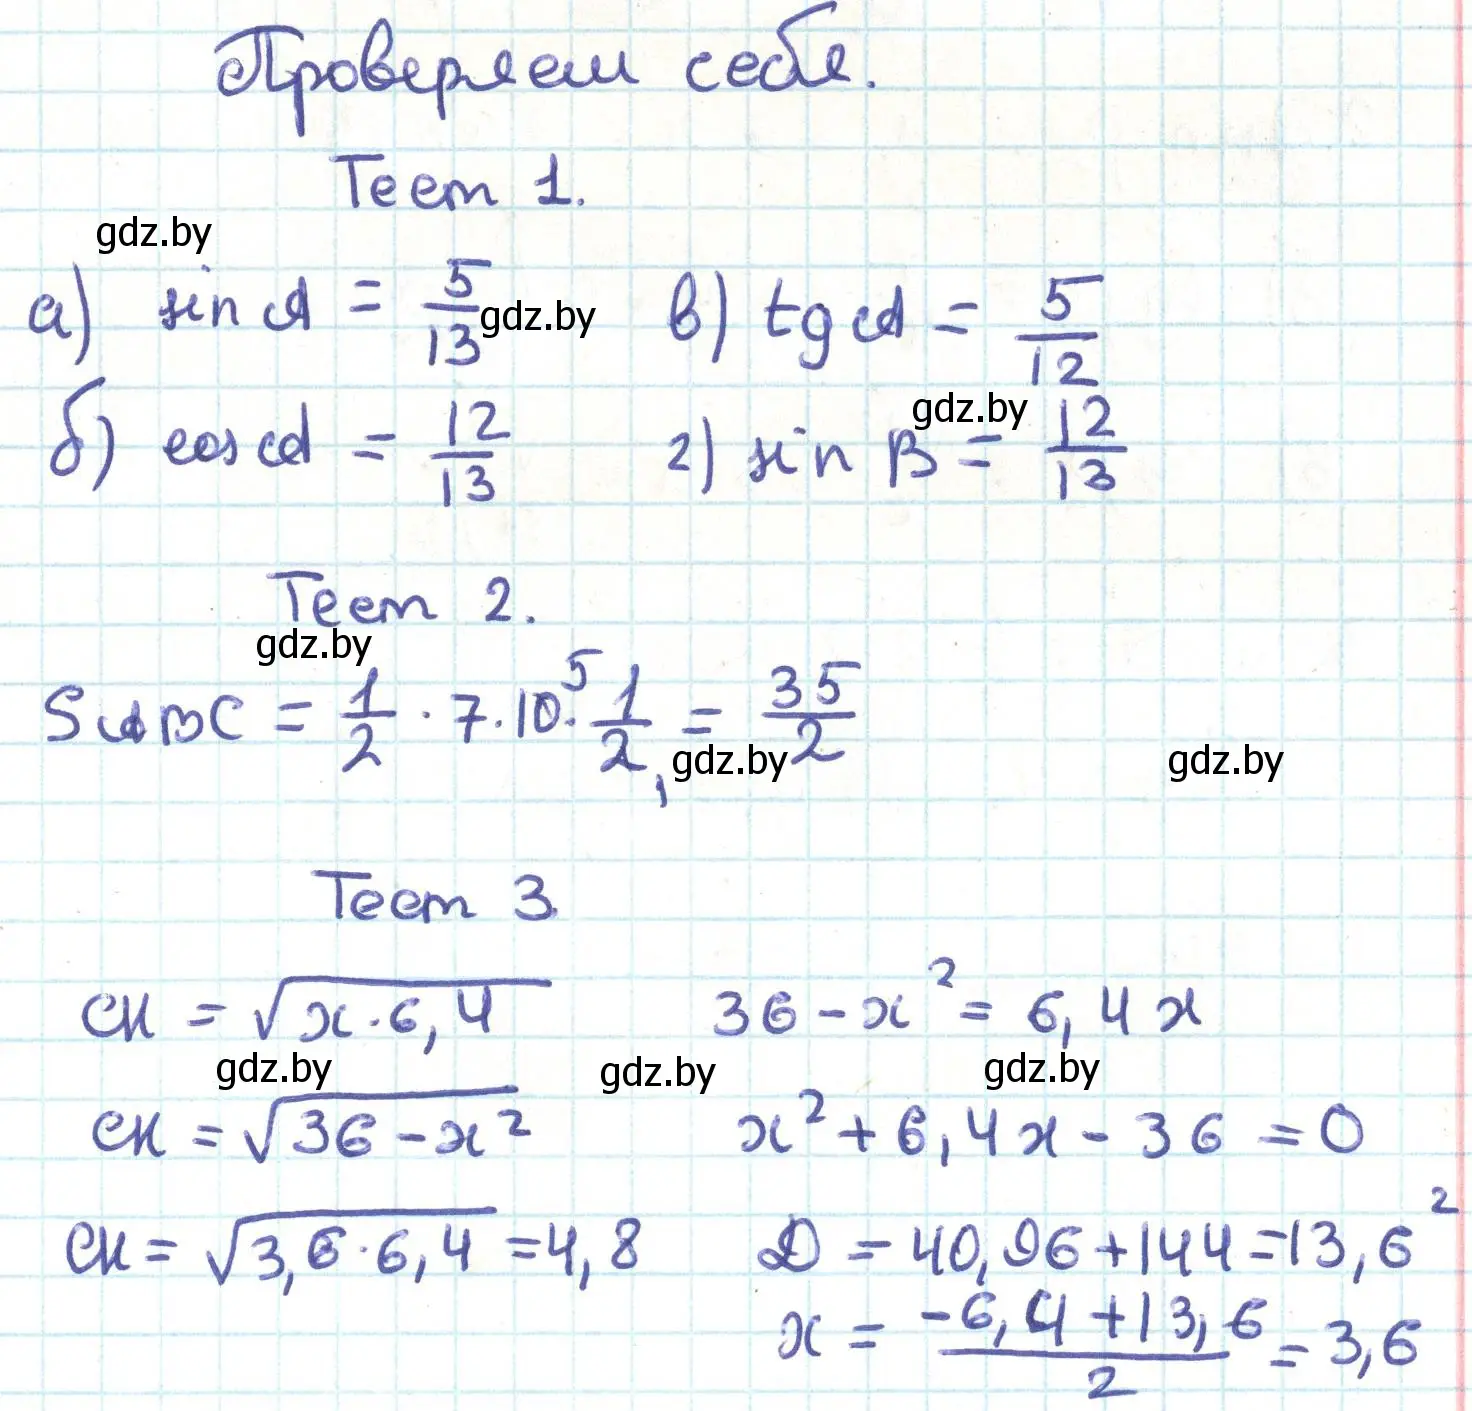 Проверяем себя.
Тест 1.
gdz.by
а) sin A = 5/13 gdz.by в) tg A = 5/12
gdz.by
б) cos A = 12/13 г) sin B = 12/13
Тест 2.
gdz.by
S ABC = 1/2 · 7 · 10 5 · 1/2, = 35/2
gdz.by gdz.by
Тест 3.
CK = √x · 6,4 36 - x² = 6,4x
gdz.by gdz.by gdz.by
CK = √36 - x² x² + 6,4x - 36 = 0
CK = √3,6 · 6,4 = 4,8 D = 40,96 + 144 = 13,6²
x = -6,4 + 13,6 / 2 = 3,6